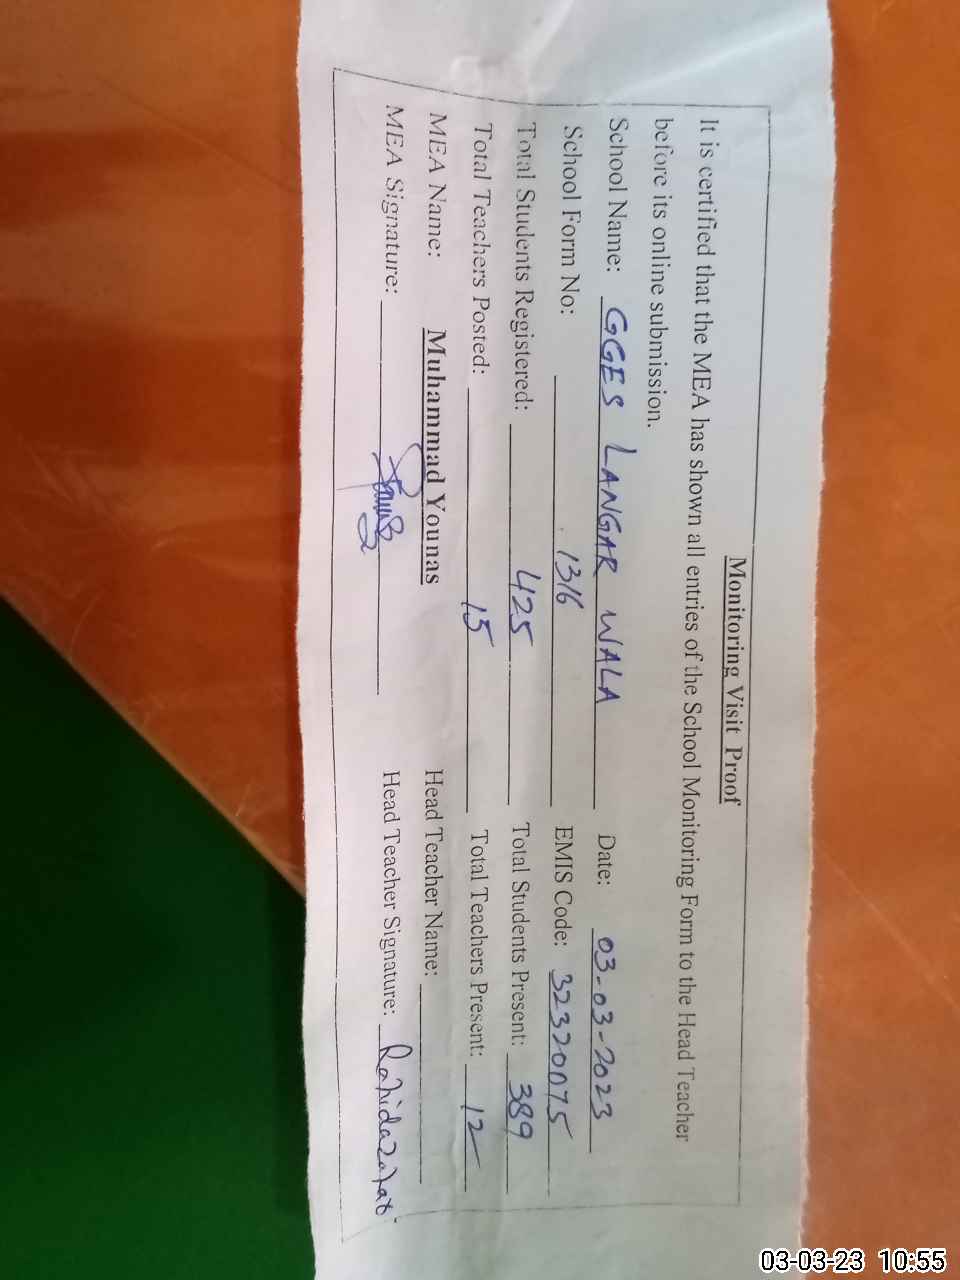 Monitoring Visit Proof
It is certified that the MEA has shown all entries of the School Monitoring Form to the Head Teacher
before its online submission.
School Name: GGES LANGAR WALA Date: 03-03-2023
School Form No: 1316 EMIS Code: 32320075
Total Students Registered: 425 Total Students Present: 389
Total Teachers Posted: 15 Total Teachers Present: 12
MEA Name: Muhammad Younas Head Teacher Name:
MEA Signature: Head Teacher Signature:
03-03-23 10:55